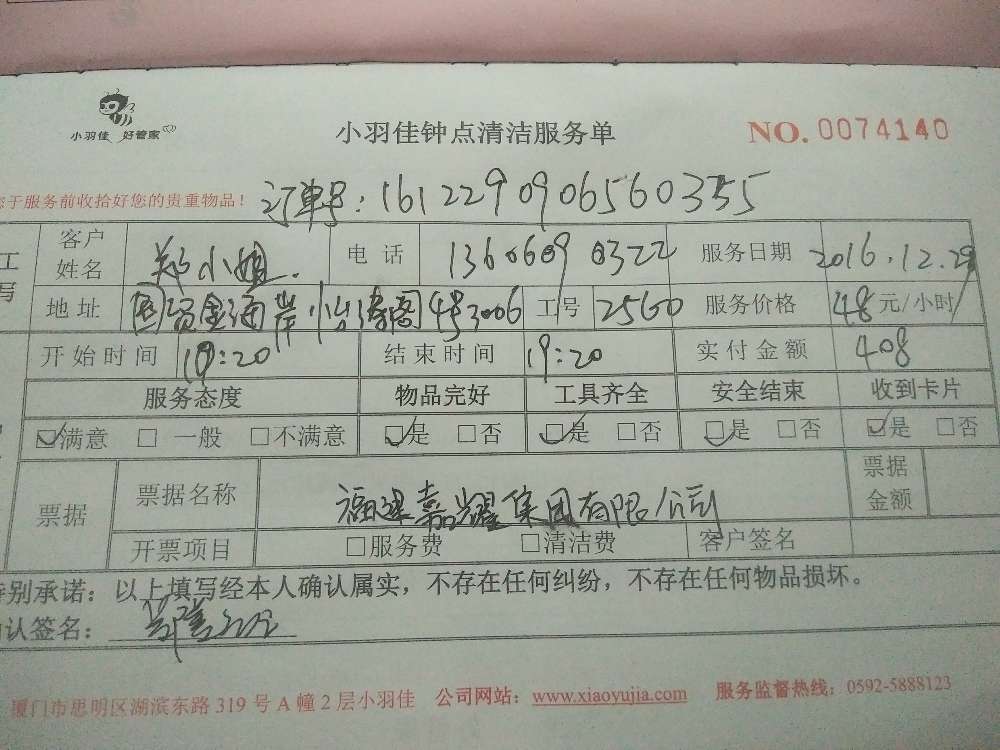 小羽佳 好管家
小羽佳钟点清洁服务单
NO.0074140
于服务前收拾好您的贵重物品！ 订单号：1612290906560355
客户姓名 郑小姐. 电话 13606090322 服务日期 2016.12.29
地址 国贸金海岸怡涛阁4号3006 工号 2560 服务价格 48元/小时
开始时间 :20 结束时间 19:20 实付金额 408
服务态度 物品完好 工具齐全 安全结束 收到卡片
☑满意 □一般 □不满意 ☑是 □否 ☑是 □否 ☑是 □否 ☑是 □否
票据 票据名称 福建嘉耀集团有限公司 票据金额
开票项目 □服务费 □清洁费 客户签名
别承诺：以上填写经本人确认属实，不存在任何纠纷，不存在任何物品损坏。
认签名：
厦门市思明区湖滨东路319号A幢2层小羽佳 公司网站：www.xiaoyujia.com 服务监督热线：0592-5888123